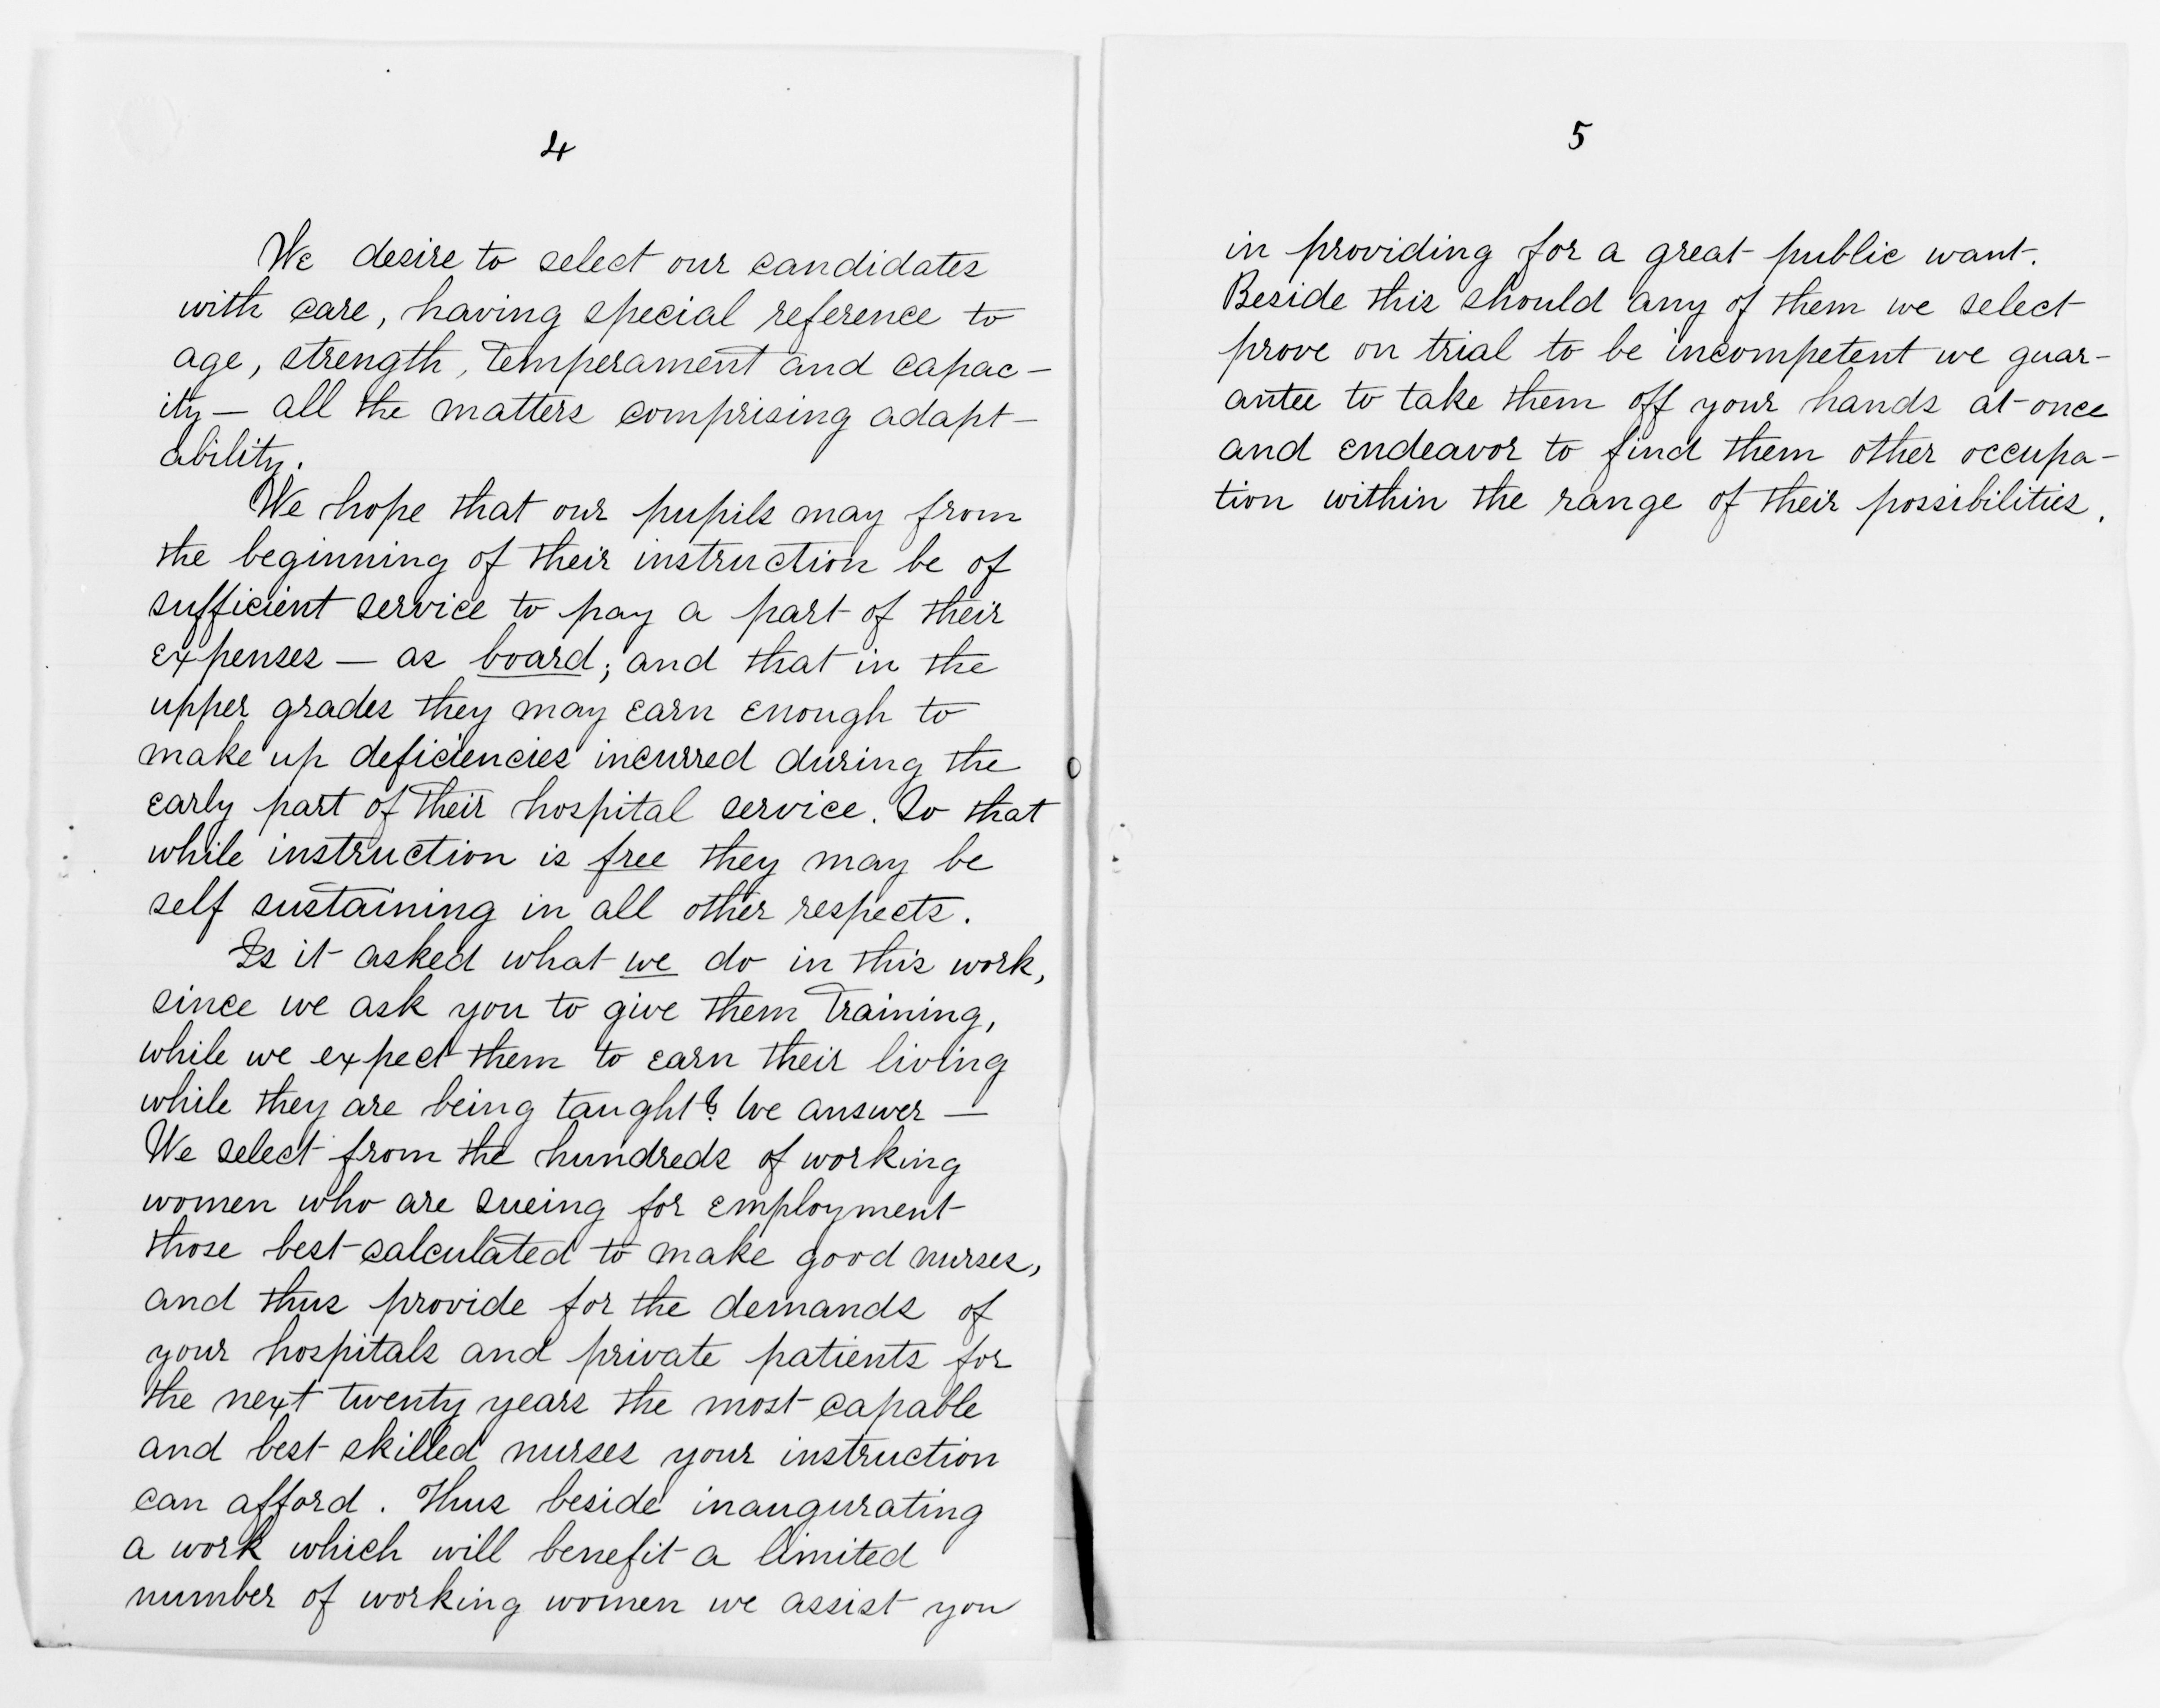 4
We desire to select our candidates
with care, having special reference to
age, strength, temperament and capac-
ity — all the matters comprising adapt-
ability.
We hope that our pupils may from
the beginning of their instruction be of
sufficient service to pay a part of their
expenses — as board; and that in the
upper grades they may earn enough to
make up deficiencies incurred during the
early part of their hospital service. So that
while instruction is free they may be
self sustaining in all other respects.
Is it asked what we do in this work,
since we ask you to give them training,
while we expect them to earn their living
while they are being taught? We answer —
We select from the hundreds of working
women who are sueing for employment
those best calculated to make good nurses,
and thus provide for the demands of
your hospitals and private patients for
the next twenty years the most capable
and best skilled nurses your instruction
can afford. Thus beside inaugurating
a work which will benefit a limited
number of working women we assist you
5
in providing for a great public want.
Beside this should any of them we select
prove on trial to be incompetent we guar-
antee to take them off your hands at once
and endeavor to find them other occupa-
tion within the range of their possibilities.